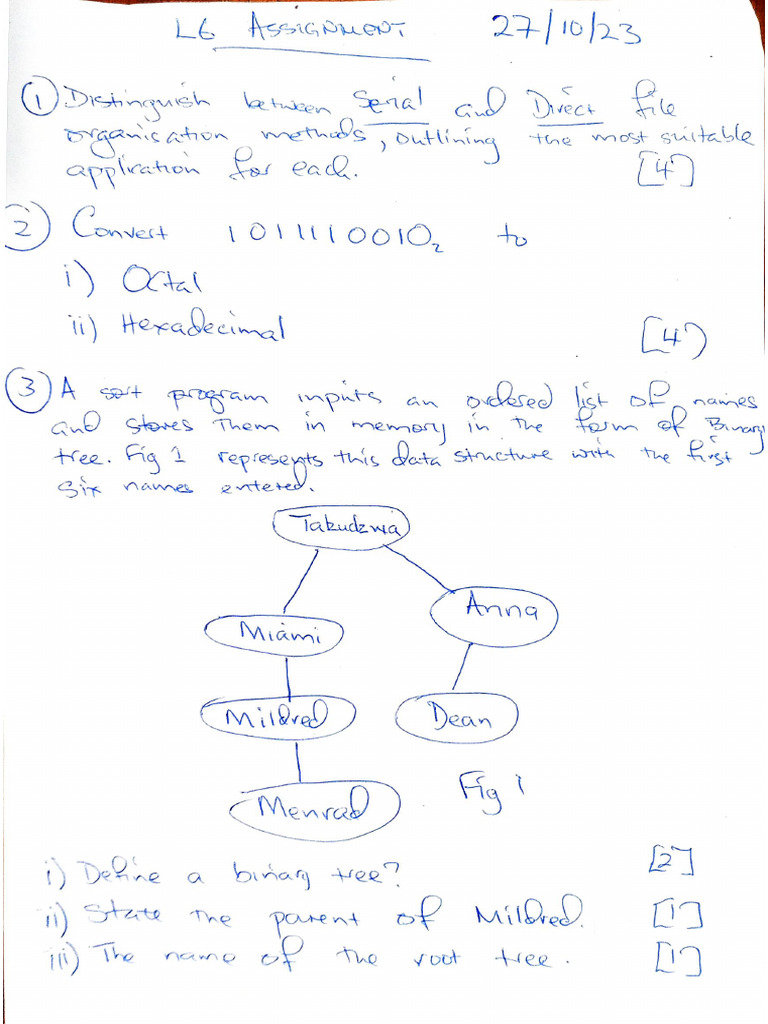 L6 ASSIGNMENT 27/10/23
① Distinguish between Serial and Direct file
organisation methods, outlining the most suitable
application for each. [4]
② Convert 1011110010₂ to
i) Octal
ii) Hexadecimal [4]
③ A sort program inputs an ordered list of names
and stores them in memory in the form of Binary
tree. Fig 1 represents this data structure with the first
six names entered.
Takudzwa
Anna
Miami
Mildred
Dean
Menrad
Fig 1
i) Define a binary tree? [2]
ii) State the parent of Mildred. [1]
iii) The name of the root tree. [1]